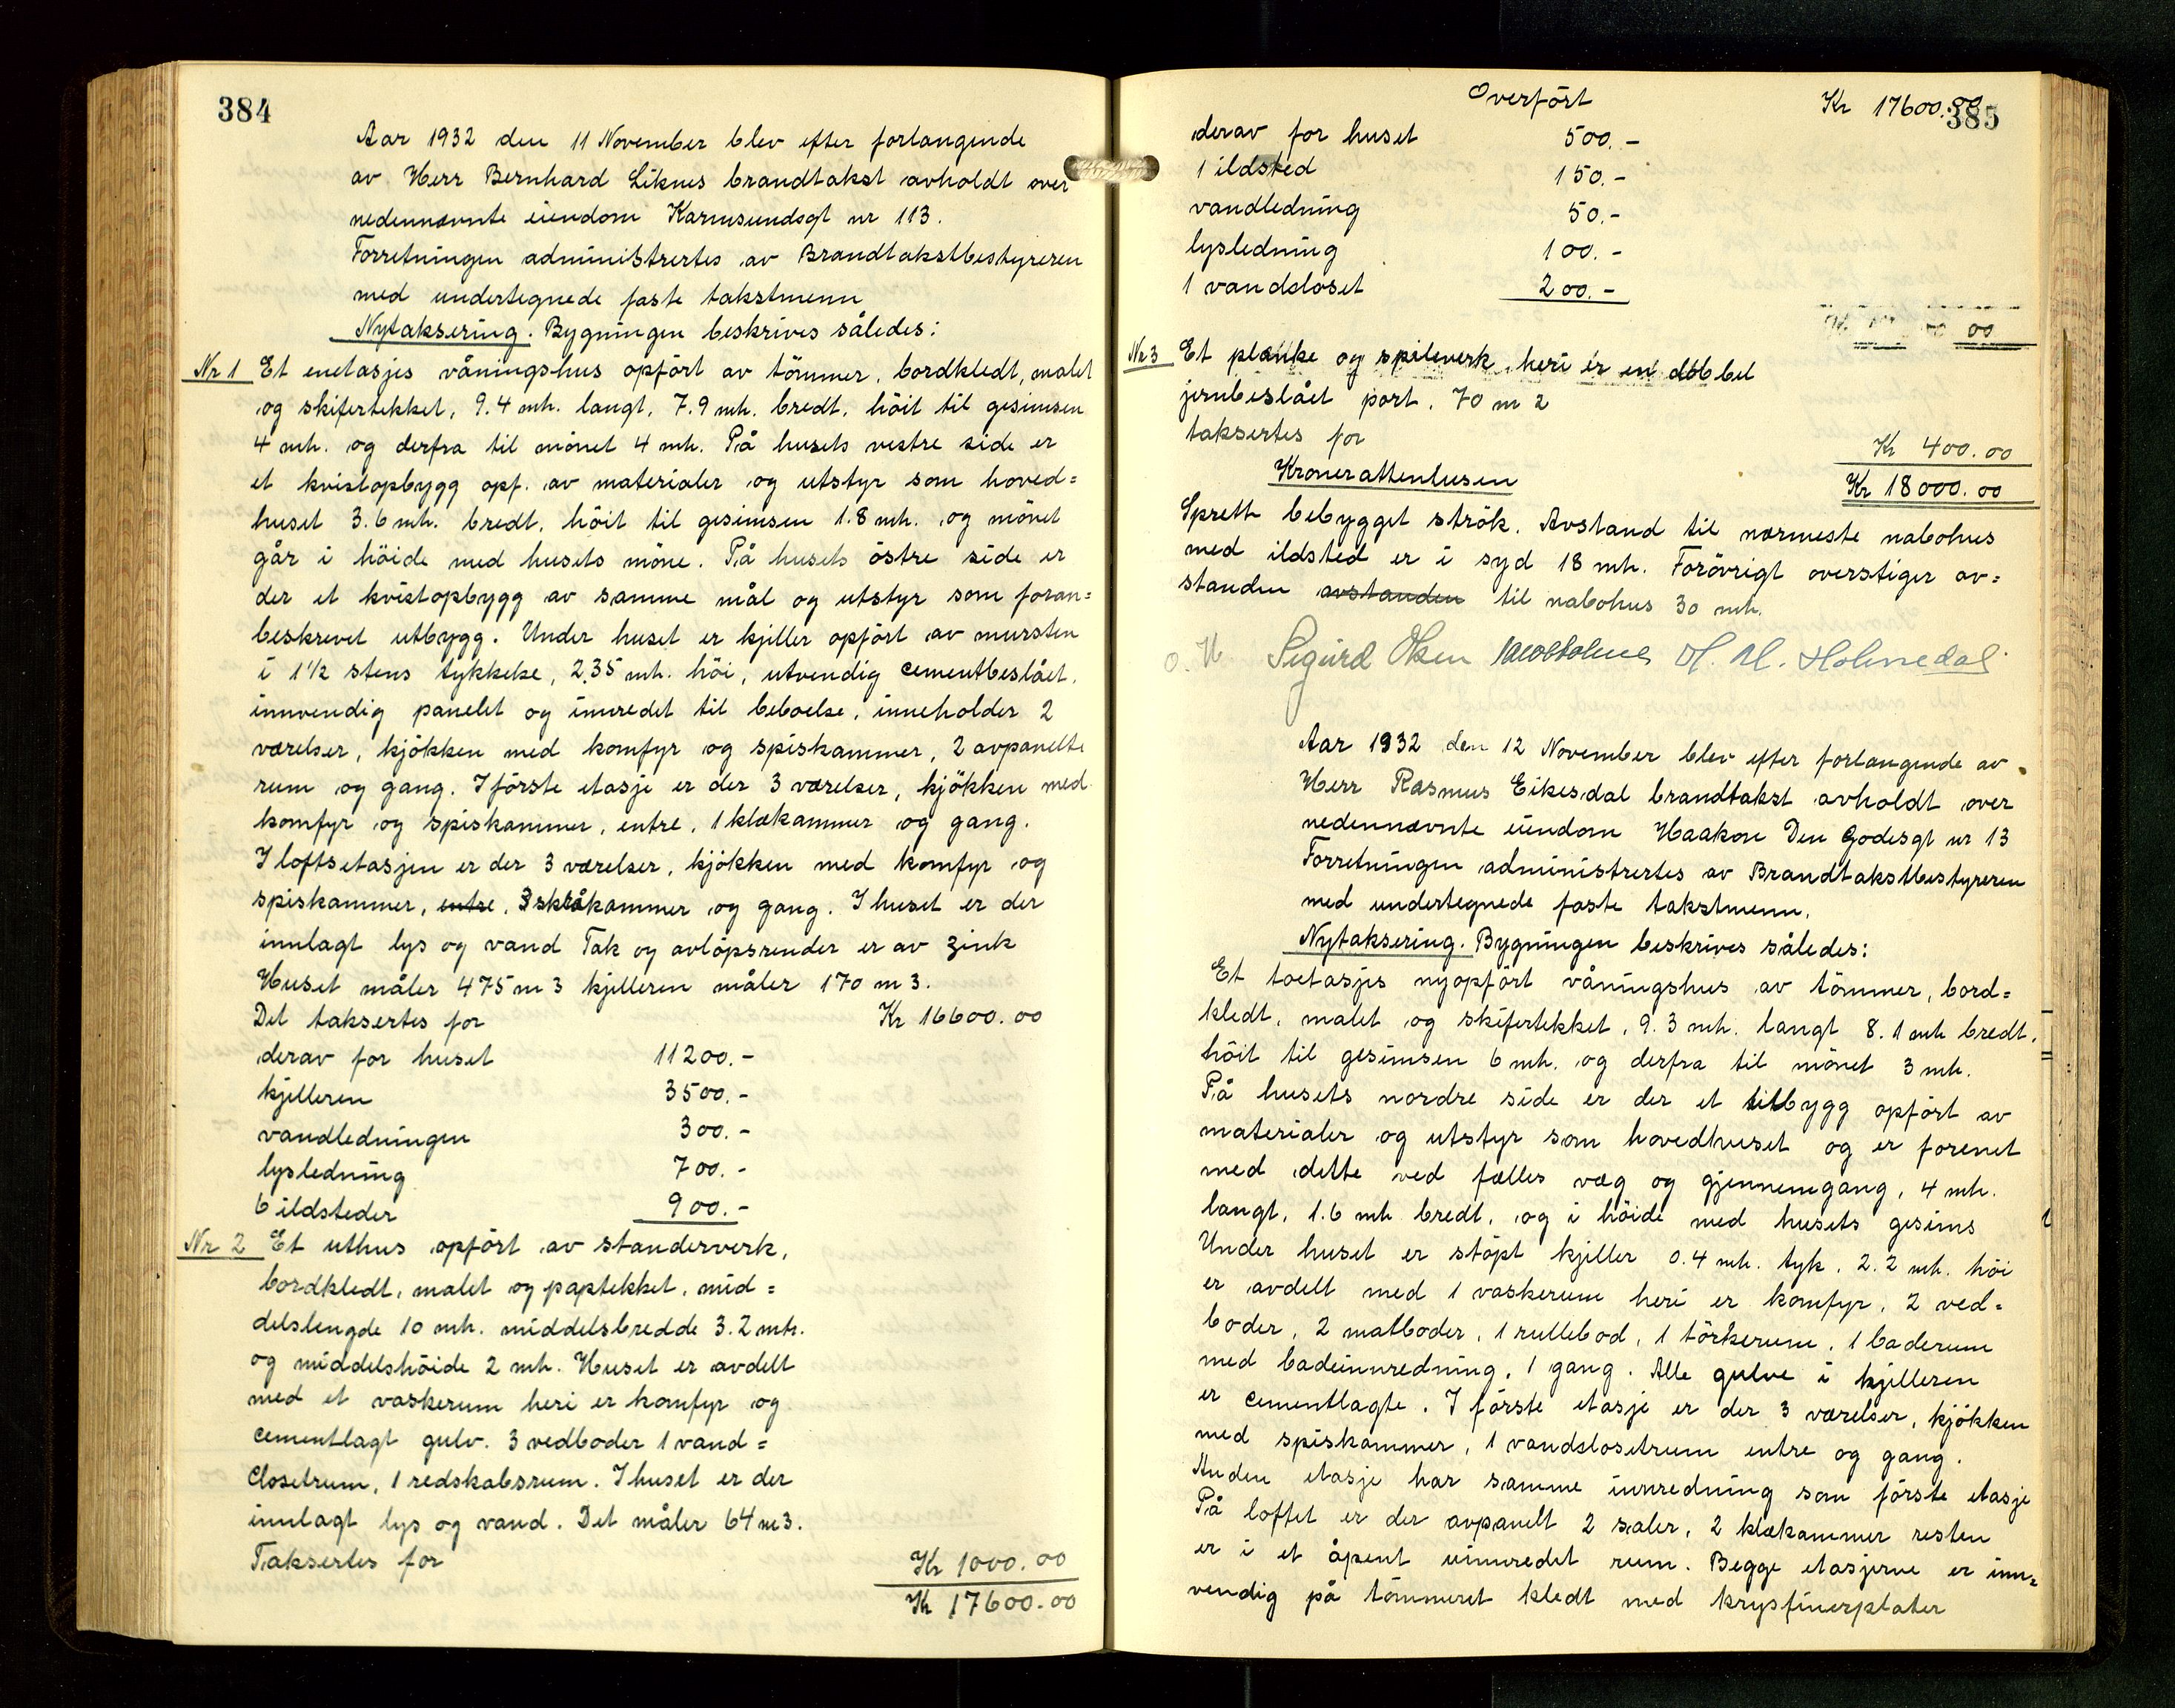 384
Aar 1932 den 11 November blev efter forlangende
av Herr Bernhard Liknes brandtakst avholdt over
nedennævnte eiendom Karmsundsgt nr 113.
Forretningen administrertes av Brandtakstbestyreren
med undertegnede faste takstmenn
Nytaksering. Bygningen beskrives således:
Nr 1 Et enetasjes våningshus opfört av tömmer, bordkledt, malet
og skifertekket, 9.4 mtr. langt, 7.9 mtr. bredt, höit til gesimsen
4 mtr. og derfra til mönet 4 mtr. På husets vestre side er
et kvistopbygg opf. av materialer og utstyr som hoved=
huset 3.6 mtr. bredt, höit til gesimsen 1.8 mtr. og mönet
går i höide med husets möne. På husets östre side er
der et kvistopbygg av samme mål og utstyr som foran=
beskrevet utbygg. Under huset er kjeller opfört av mursten
i 1 1/2 stens tykkelse, 2.35 mtr. höi, utvendig cementbeslået,
innvendig panelet og innredet til beboelse, inneholder 2
værelser, kjökken med komfyr og spiskammer, 2 avpanelte
rum og gang. I förste etasje er der 3 værelser, kjökken med
komfyr og spiskammer, entre, 1 klækammer og gang.
I loftsetasjen er der 3 værelser, kjökken med komfyr og
spiskammer, entre, 3 skråkammer og gang. I huset er der
innlagt lys og vand Tak og avlöpsrender er av zink
Huset måler 475 m 3 kjelleren måler 170 m 3.
Det taksertes for Kr 16600.00
derav for huset 11200.-
kjelleren 3500.-
vandledningen 300.-
lysledning 700.-
6 ildsteder 900.-
Nr 2 Et uthus opfört av standerverk,
bordkledt, malet og paptekket, mid=
delslengde 10 mtr. middelsbredde 3.2 mtr.
og middelshöide 2 mtr. Huset er avdelt
med et vaskerum heri er komfyr og
cementlagt gulv. 3 vedboder 1 vand=
closetrum, 1 redskabsrum. I huset er der
innlagt lys og vand. Det måler 64 m3.
Taksertes for Kr 1000.00
Kr 17600.00
Overfört Kr 17600.00
385
derav for huset 500.-
1 ildsted 150.-
vandledning 50.-
lysledning 100.-
1 vandcloset 200.-
Nr 3 Et planke og spileverk, heri er en dobbel
jernbeslået port. 70 m 2
taksertes for Kr 400.00
Kroner attentusen Kr 18000.00
Spredt bebygget strök. Avstand til nærmeste nabohus
med ildsted er i syd 18 mtr. Forövrigt overstiger av=
standen avstanden til nabohus 30 mtr.
Sigurd Olsen H. M. Holmedal
Aar 1932 den 12 November blev efter forlangende av
Herr Rasmus Eikesdal brandtakst avholdt over
nedennævnte eiendom Haakon Den Godesgt nr 13
Forretningen administrertes av Brandtakstbestyreren
med undertegnede faste takstmenn.
Nytaksering. Bygningen beskrives således:
Et toetasjes nyopfört våningshus av tömmer, bord=
kledt, malet og skifertekket, 9.3 mtr. langt 8.1 mtr bredt,
höit til gesimsen 6 mtr. og derfra til mönet 3 mtr.
På husets nordre side er der et tilbygg opfört av
materialer og utstyr som hovedhuset og er forenet
med dette ved fælles væg og gjennemgang, 4 mtr.
langt, 1.6 mtr bredt, og i höide med husets gesims
Under huset er stöpt kjeller 0.4 mtr. tyk, 2.2 mtr. höi
er avdelt med 1 vaskerum heri er komfyr, 2 ved=
boder, 2 matboder, 1 rullebod, 1 törkerum, 1 baderum
med badeinnredning, 1 gang. Alle gulve i kjelleren
er cementlagte. I förste etasje er der 3 værelser, kjökken
med spiskammer, 1 vandclosetrum entre og gang.
Anden etasje har samme innredning som förste etasje
På loftet er der avpanelt 2 saler, 2 klækammer resten
er i et åpent uinnredet rum. Begge etasjerne er inn=
vendig på tömmeret kledt med krysfinerplater